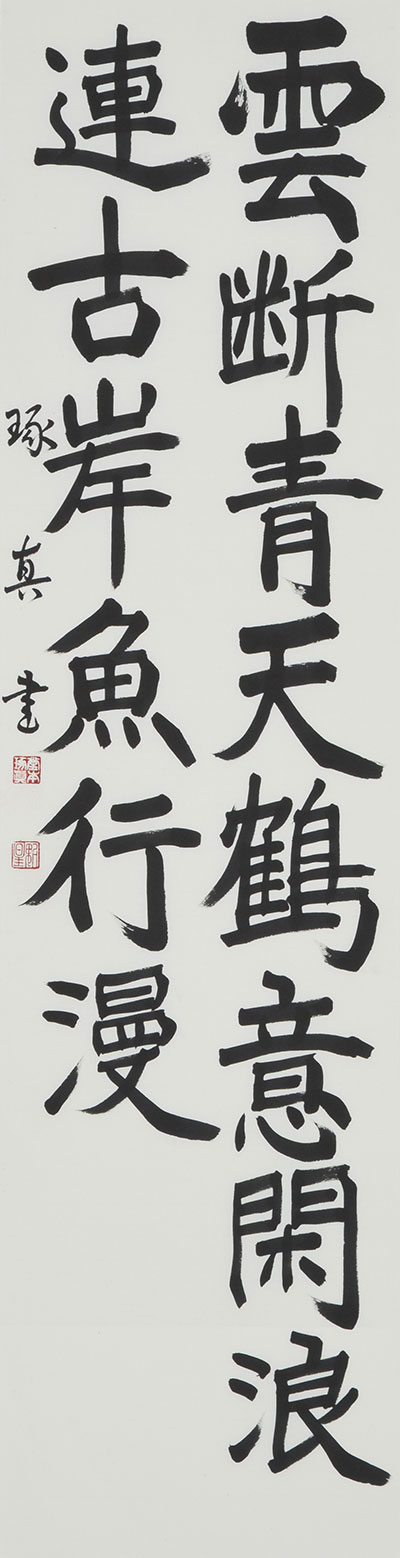 雲断青天鶴意閑浪
連古岸魚行漫
琢真書